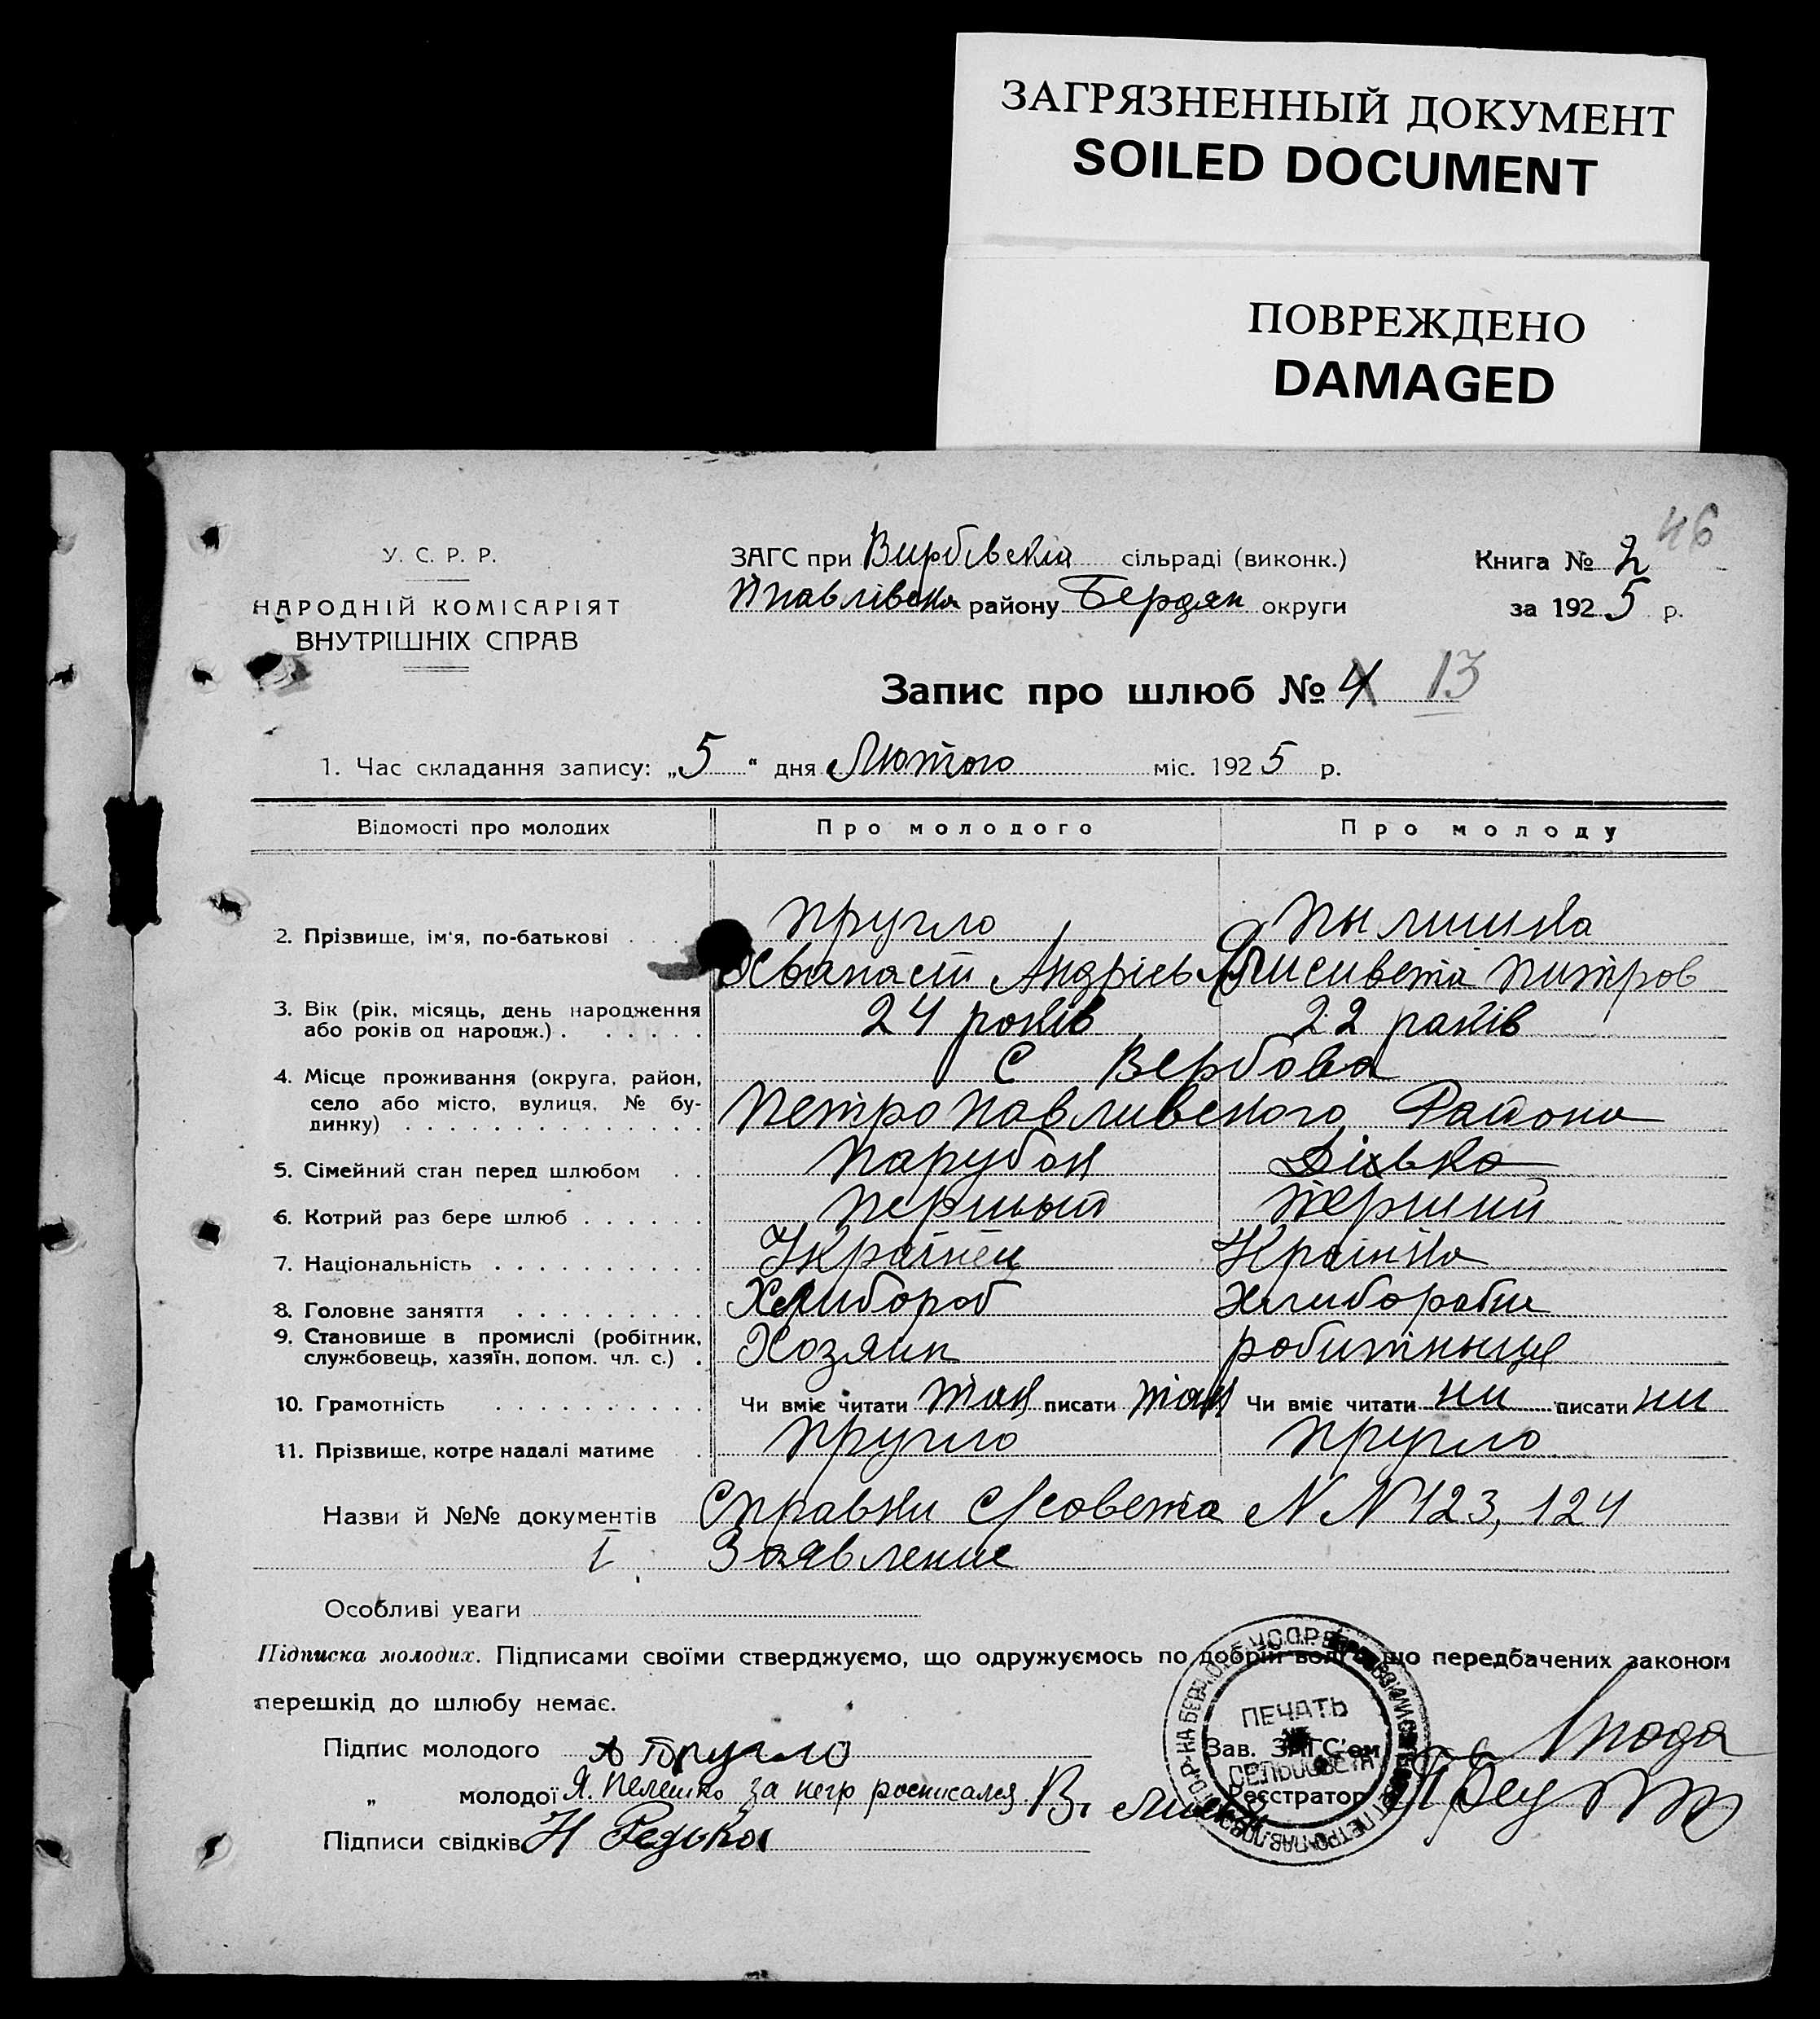 ЗАГРЯЗНЕННЫЙ ДОКУМЕНТ
SOILED DOCUMENT
ПОВРЕЖДЕНО
DAMAGED
46
У. С. Р. Р.
НАРОДНІЙ КОМІСАРІЯТ
ВНУТРІШНІХ СПРАВ
ЗАГС при Вирбівскій сільраді (виконк.)
Ппавлівськ району Бердян округи
Книга № 2
за 1925 р.
Запис про шлюб № 4 13
1. Час складання запису: „5" дня Лютого міс. 1925 р.
Відомості про молодих Про молодого Про молоду
2. Прізвище, ім'я, по-батькові Пругло
Андріев Лисивета Питров
3. Вік (рік, місяць, день народження
або років од народж.) 24 років 22 раків
С Вербова
4. Місце проживання (округа, район,
село або місто, вулиця, № бу-
динку) Петропавливского Района
5. Сімейний стан перед шлюбом Парубок Дівька
6. Котрий раз бере шлюб Первый Перший
7. Національність Українец Країнка
8. Головне заняття Хлибороб хлиборобка
9. Становище в промислі (робітник,
службовець, хазяїн, допом. чл. с.) Хозяин робитныця
10. Грамотність Чи вміє читати так писати так Чи вміє читати ни писати ни
11. Прізвище, котре надалі матиме Пругло Пругло
Назви й №№ документів Справки С/совета N N 123, 124
І Заявление
Особливі уваги
Підписка молодих. Підписами своїми стверджуємо, що одружуємось по добрій волі що передбачених законом
перешкід до шлюбу немає.
Підпис молодого А Пругло
„ молодої Я. Пелешко за негр росписался
Підписи свідків Н Редька
Зав. ЗАГС'ом
Реєстратор
ПЕЧАТЬ
СЕЛЬСОВЕТА